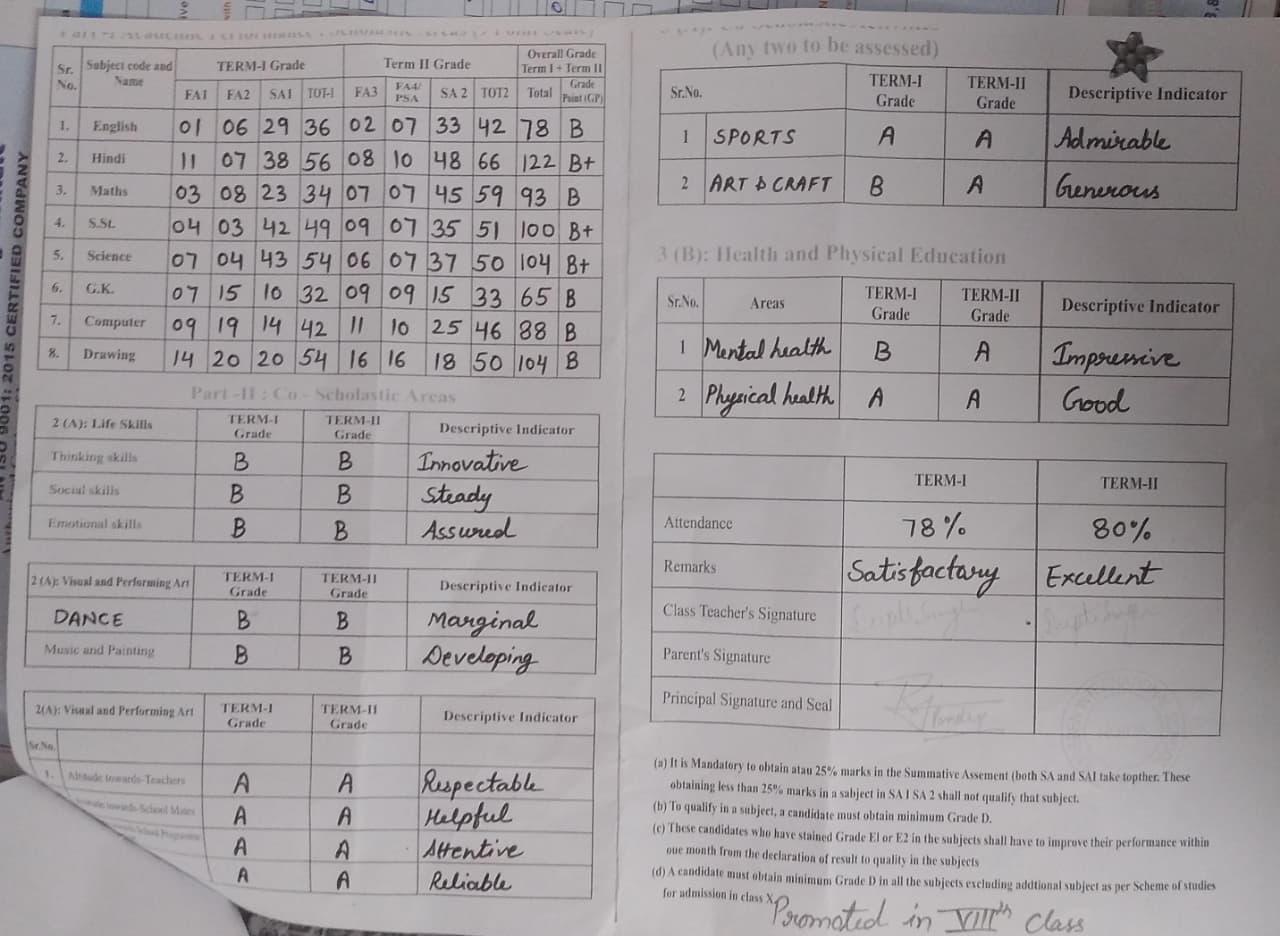 AN ISO 9001: 2015 CERTIFIED COMPANY
Sr. No. Subject code and Name TERM-I Grade Term II Grade Overall Grade Term I + Term II
FA1 FA2 SA1 TOT-1 FA3 FA4/ PSA SA 2 TOT2 Total Grade Point (GP)
1. English 01 06 29 36 02 07 33 42 78 B
2. Hindi 11 07 38 56 08 10 48 66 122 B+
3. Maths 03 08 23 34 07 07 45 59 93 B
4. S.St. 04 03 42 49 09 07 35 51 100 B+
5. Science 07 04 43 54 06 07 37 50 104 B+
6. G.K. 07 15 10 32 09 09 15 33 65 B
7. Computer 09 19 14 42 11 10 25 46 88 B
8. Drawing 14 20 20 54 16 16 18 50 104 B
Part -II : Co - Scholastic Areas
2 (A): Life Skills TERM-I Grade TERM-II Grade Descriptive Indicator
Thinking skills B B Innovative
Social skills B B Steady
Emotional skills B B Assured
2 (A): Visual and Performing Art TERM-I Grade TERM-II Grade Descriptive Indicator
DANCE B B Marginal
Music and Painting B B Developing
2(A): Visual and Performing Art TERM-I Grade TERM-II Grade Descriptive Indicator
Sr.No.
1. Altitude towards-Teachers A A Respectable
towards-School Mates A A Helpful
A A Attentive
A A Reliable
(Any two to be assessed)
Sr.No. TERM-I Grade TERM-II Grade Descriptive Indicator
1 SPORTS A A Admirable
2 ART & CRAFT B A Generous
3 (B): Health and Physical Education
Sr.No. Areas TERM-I Grade TERM-II Grade Descriptive Indicator
1 Mental health B A Impressive
2 Physical health A A Good
TERM-I TERM-II
Attendance 78% 80%
Remarks Satisfactary Excellent
Class Teacher's Signature
Parent's Signature
Principal Signature and Seal
(a) It is Mandatory to obtain atau 25% marks in the Summative Assement (both SA and SAI take topther. These
obtaining less than 25% marks in a sabject in SA I SA 2 shall not qualify that subject.
(b) To qualify in a subject, a candidate must obtain minimum Grade D.
(c) These candidates who have stained Grade El or E2 in the subjects shall have to improve their performance within
oue month from the declaration of result to quality in the subjects
(d) A candidate must obtain minimum Grade D in all the subjects excluding addtional subject as per Scheme of studies
for admission in class X.
Promoted in VIIIth Class